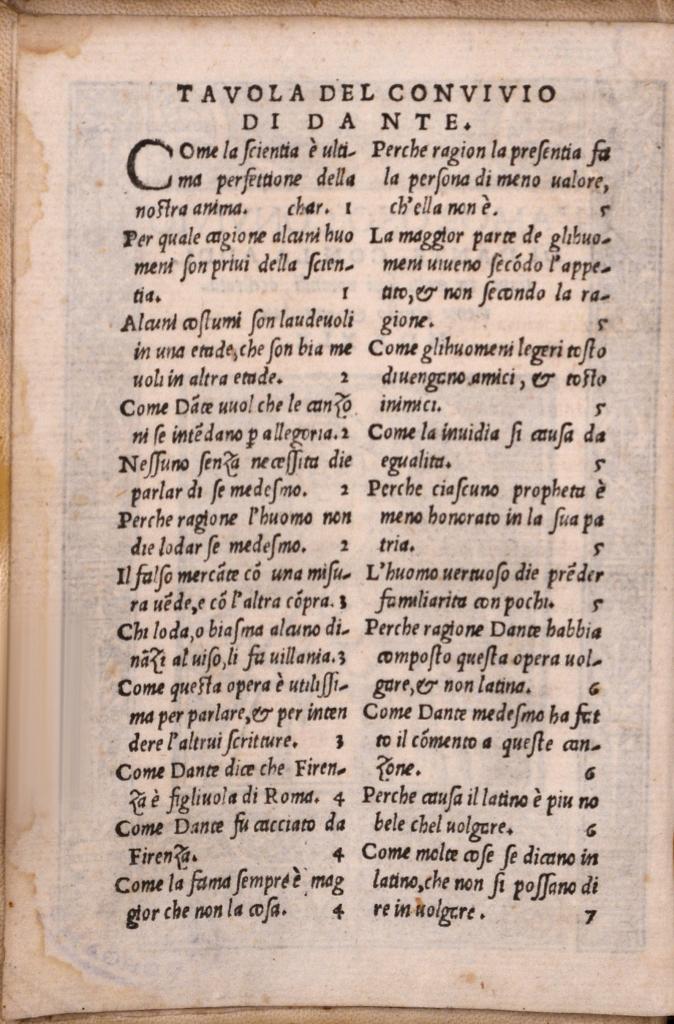 TAVOLA DEL CONVIVIO
DI DANTE.
COme la scientia è ulti-
ma perfettione della
nostra anima. char. 1
Per quale cagione alcuni huo
meni son privi della scien-
tia. 1
Alcuni costumi son laudevoli
in una etade, che son bia me
uoli in altra etade. 2
Come Dãte uuol che le canzo
ni se intẽdano ꝑ allegoria. 2
Nessuno senza necessita die
parlar di se medesmo. 2
Perche ragione l'huomo non
die lodar se medesmo. 2
Il falso mercãte cõ una misu-
ra uẽde, e cõ l'altra cõpra. 3
Chi loda, o biasma alcuno di-
nãzi al uiso, li fa uillania. 3
Come questa opera è utilissi-
ma per parlare, & per inten
dere l'altrui scritture. 3
Come Dante dice che Firen-
za è figliuola di Roma. 4
Come Dante fu cacciato da
Firenza. 4
Come la fama sempre è mag
gior che non la cosa. 4
Perche ragion la presentia fa
la persona di meno ualore,
ch'ella non è. 5
La maggior parte de glihuo-
meni uiueno secõdo l'appe-
tito, & non secondo la ra-
gione. 5
Come glihuomeni legeri tosto
diuengono amici, & tosto
inimici. 5
Come la inuidia si causa da
egualita. 5
Perche ciascuno propheta è
meno honorato in la sua pa
tria. 5
L'huomo uertuoso die prẽder
familiarita con pochi. 5
Perche ragione Dante habbia
composto questa opera uol-
gare, & non latina. 6
Come Dante medesmo ha fat
to il cõmento a queste can-
zone. 6
Perche causa il latino è piu no
bele chel uolgare. 6
Come molte cose se dicano in
latino, che non si possano di
re in uolgare. 7